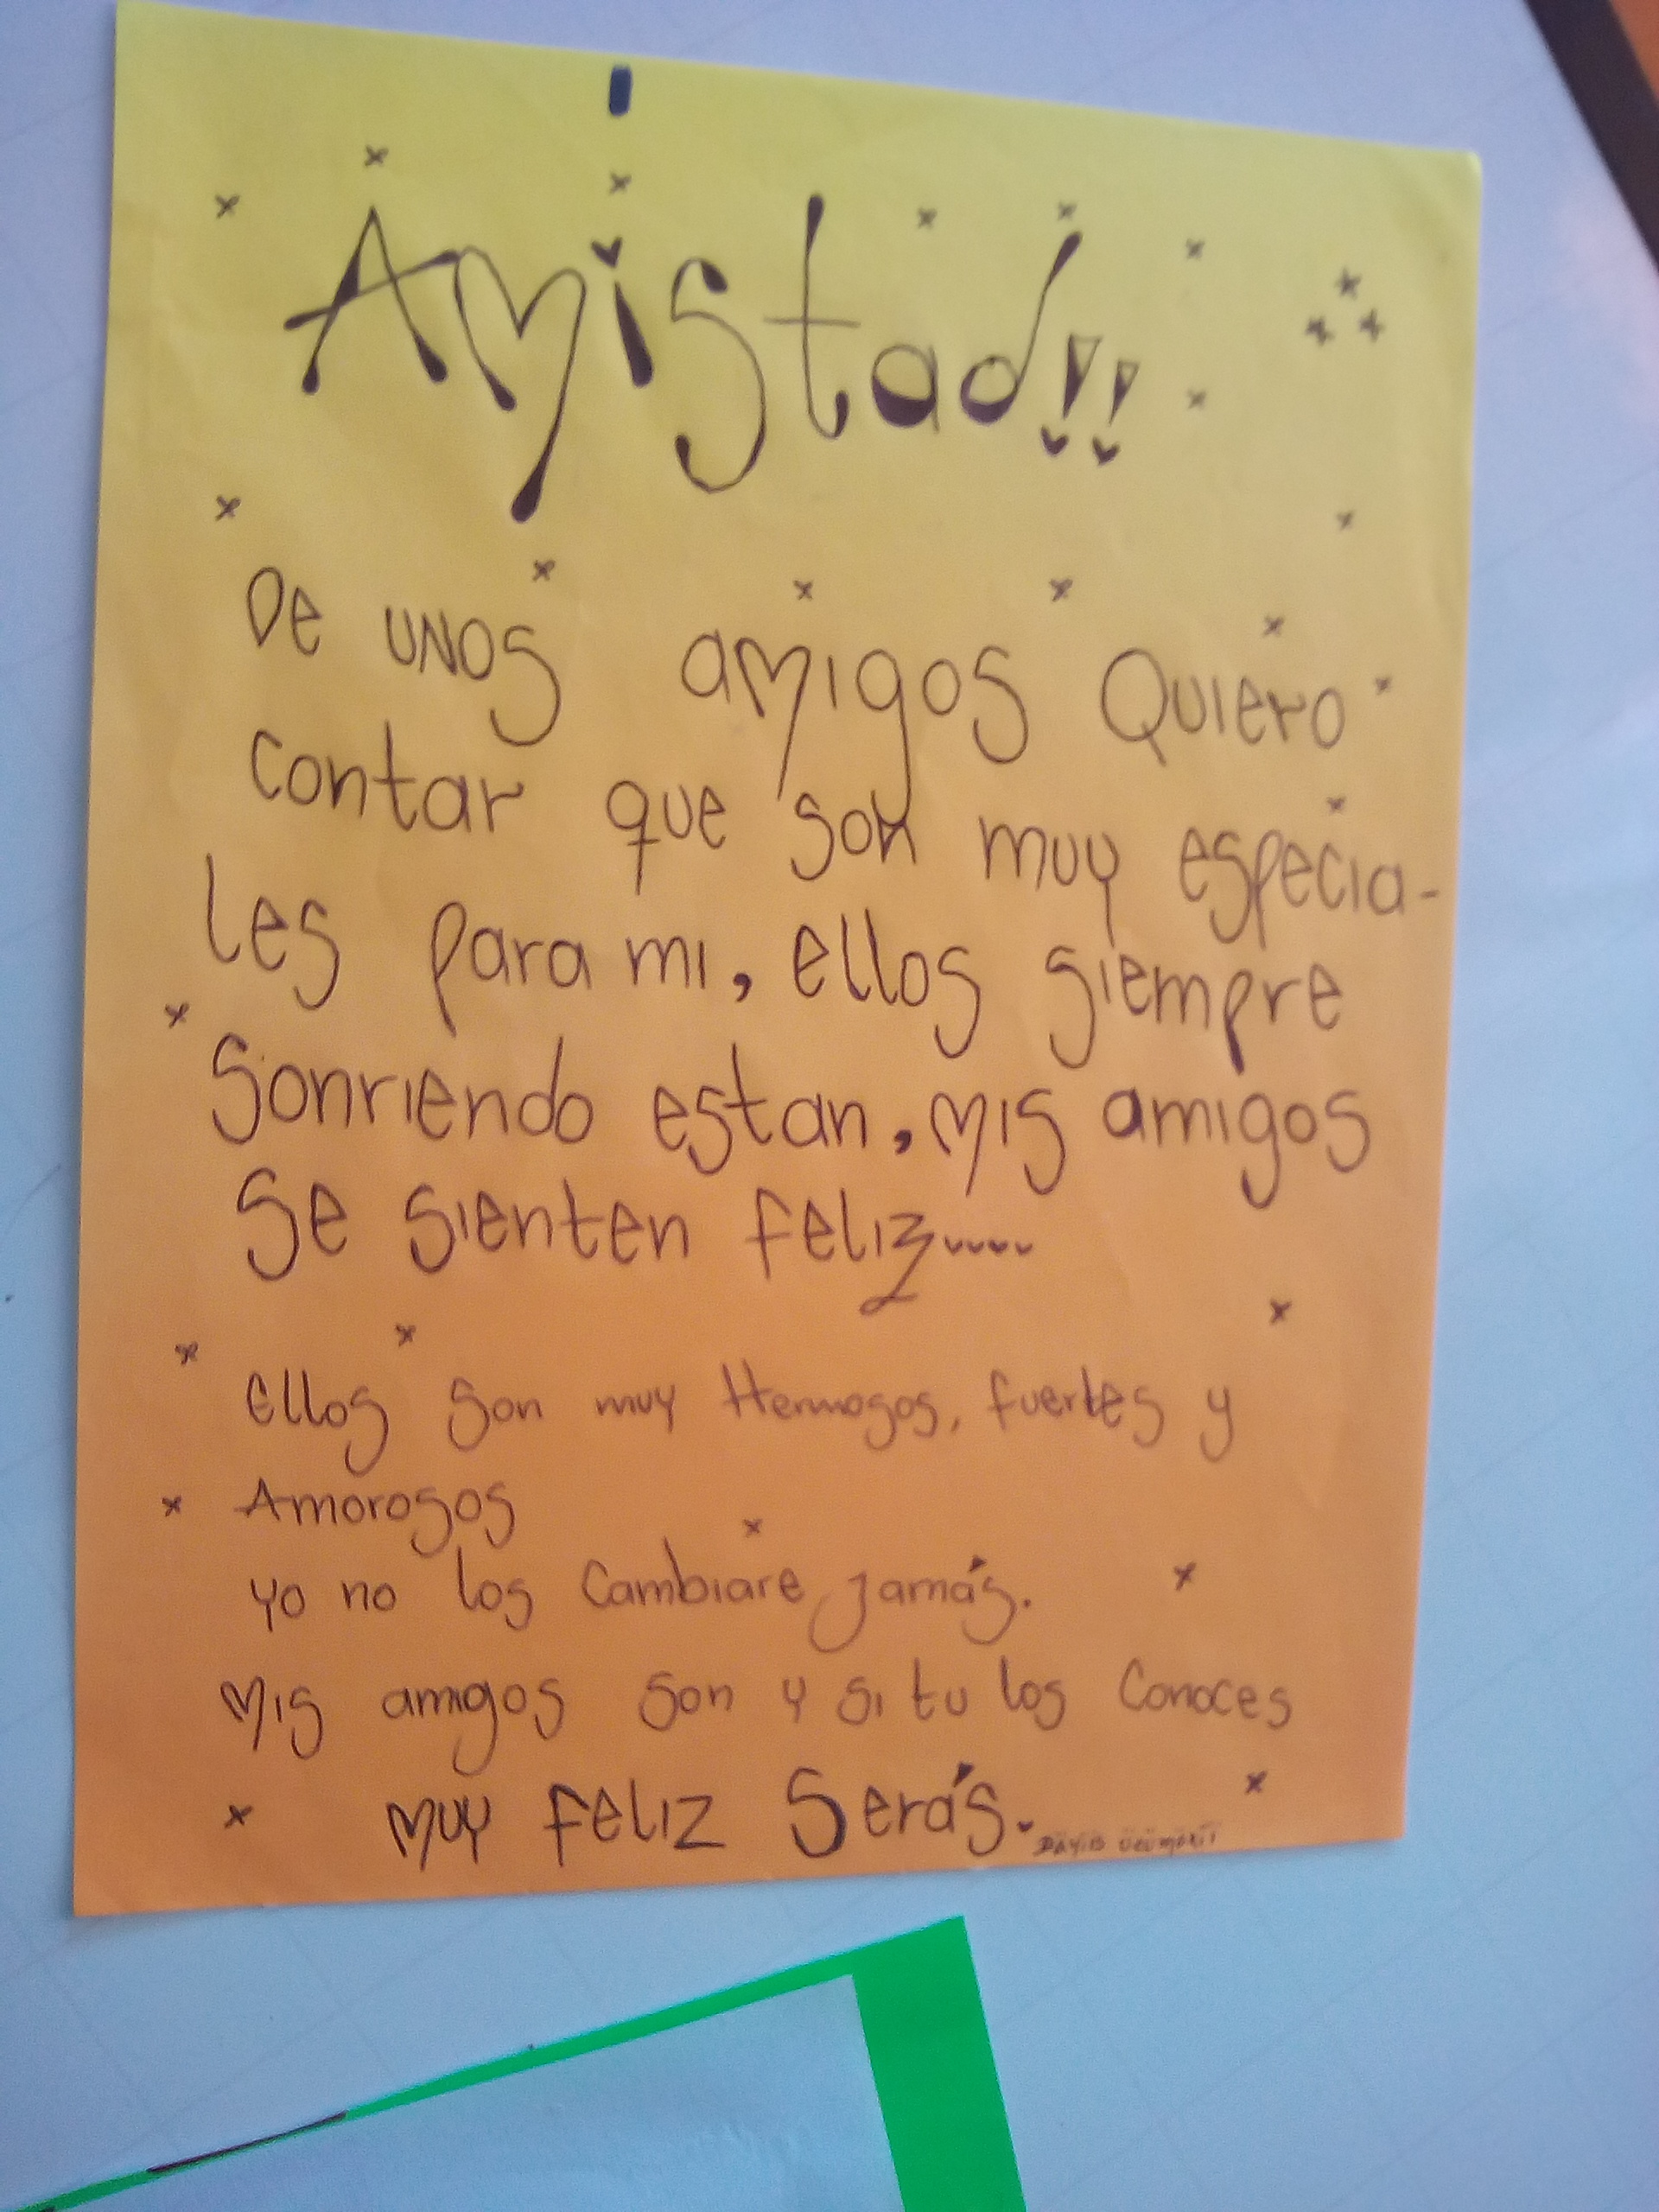 Amistad!!
De unos amigos Quiero
contar que son muy especia-
les para mi, ellos siempre
Sonriendo estan, Mis amigos
Se sienten feliz....
Ellos son muy Hermosos, fuertes y
Amorosos
yo no los Cambiare Jamás.
Mis amigos son y si tu los Conoces
Muy feliz Serás.